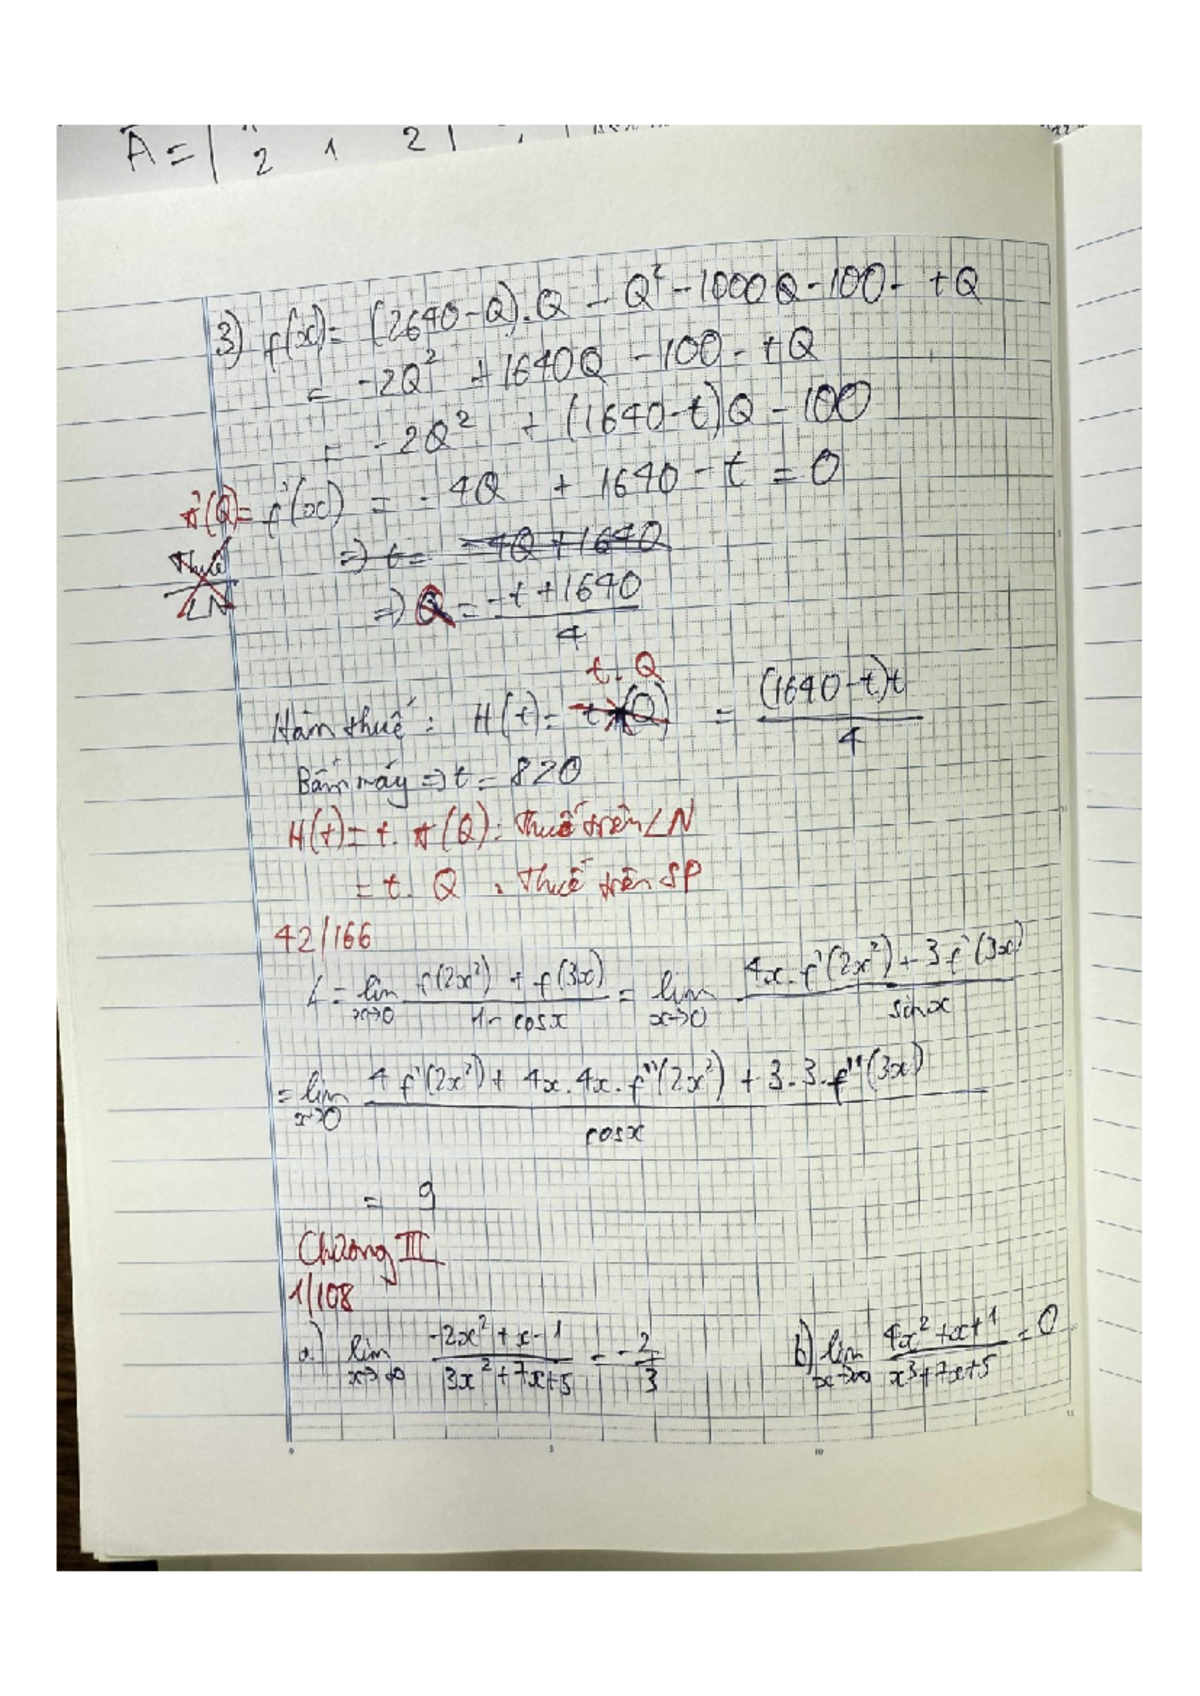 A = | 2 1 2 |
3) f(x) = (2640 - Q).Q - Q² - 1000Q - 100 - tQ
= -2Q² + 1640Q - 100 - tQ
= -2Q² + (1640 - t)Q - 100
π'(Q) = f'(x) = -4Q + 1640 - t = 0
Thuế
LN
=> t = -4Q + 1640
=> Q = (-t + 1640)/4
t. Q
Hàm thuế: H(t) = t × (Q) = (1640 - t)t/4
Bấm máy => t = 820
H(t) = t. π(Q): Thuế trên LN
= t. Q : Thuế trên SP
42/166
L = lim x→0 (f(2x²) + f(3x))/(1 - cosx) = lim x→0 (4x.f'(2x²) + 3f'(3x))/sinx
= lim x→0 (4f'(2x²) + 4x.4x.f''(2x²) + 3.3.f''(3x))/cosx
= 9
Chương III
1/108
a.) lim x→∞ (-2x² + x - 1)/(3x² + 7x + 5) = -2/3 b) lim x→∞ (4x² + x + 1)/(x³ + 7x + 5) = 0
0 5 10